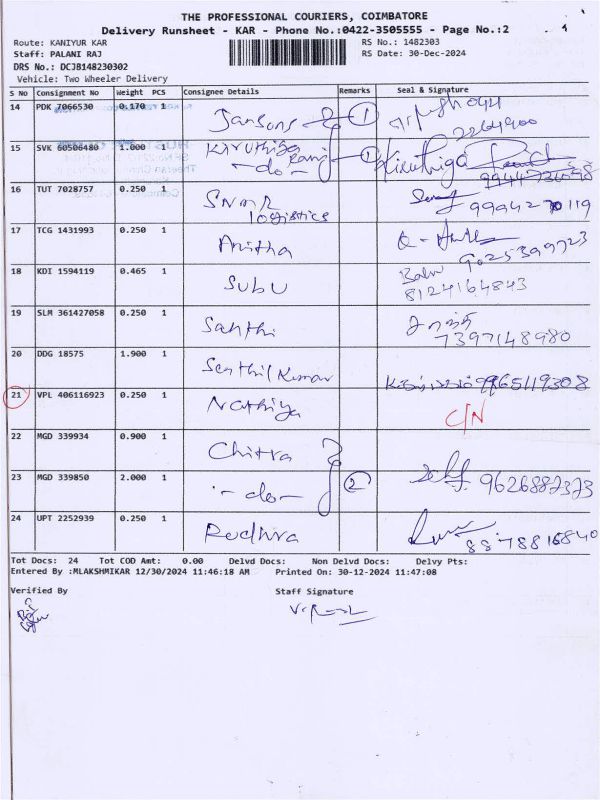 THE PROFESSIONAL COURIERS, COIMBATORE
Delivery Runsheet - KAR - Phone No.:0422-3505555 - Page No.:2
Route: KANIYUR KAR
RS No.: 1482303
Staff: PALANI RAJ
RS Date: 30-Dec-2024
DRS No.: DCJB148230302
Vehicle: Two Wheeler Delivery
S No Consignment No Weight PCS Consignee Details Remarks Seal & Signature
14 PDK 7066530 0.170 1 Jansons 1
2264900
15 SVK 60506480 1.000 1 Karuthiga
-do- 1 Kiruthiga
16 TUT 7028757 0.250 1 SNMR
logistics
17 TCG 1431993 0.250 1 Anitha 9025399723
18 KDI 1594119 0.465 1 Subu Babu
8124164843
19 SLM 361427058 0.250 1 Santhi சாந்தி
7397148980
20 DDG 18575 1.900 1 Senthil Kumar 9965119308
21 VPL 406116923 0.250 1 Nathiya C/N
22 MGD 339934 0.900 1 Chitra
23 MGD 339850 2.000 1 -do- 2 9626887373
24 UPT 2252939 0.250 1 Rudhra 8878816840
Tot Docs: 24 Tot COD Amt: 0.00 Delvd Docs: Non Delvd Docs: Delvy Pts:
Entered By :MLAKSHMIKAR 12/30/2024 11:46:18 AM Printed On: 30-12-2024 11:47:08
Verified By Staff Signature